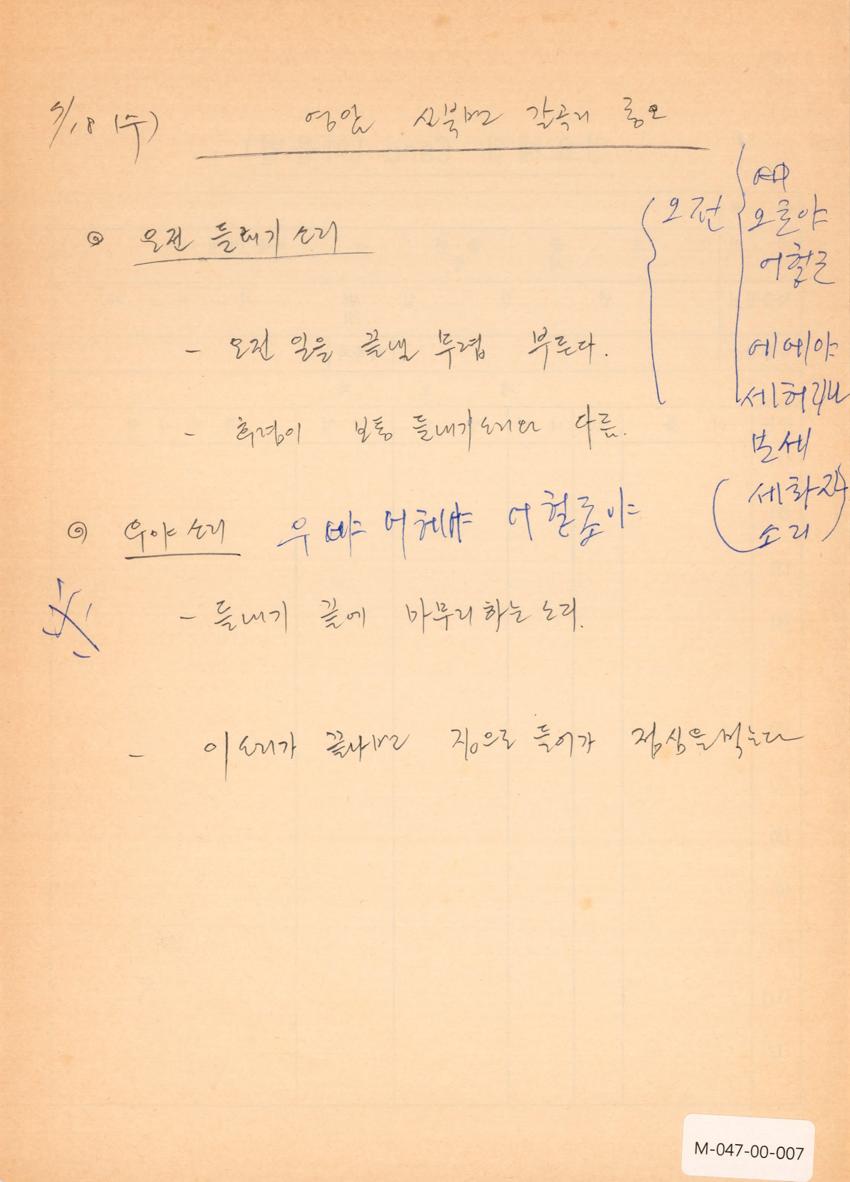 7/18 (수) 영암 신북면 갈곡리 농요
◎ 오전 들내기 소리
- 오전 일을 끝낼 무렵 부른다.
- 후렴이 보통 들내기소리와 다름.
◎ 우야 소리 우 야 어헤야 어헐롱야
- 들내기 끝에 마무리 하는 소리.
- 이 소리가 끝나면 집으로 들어가 점심을 먹는다
오전
에
오호야
어헐근
에에야
보세
세화자
소리
M-047-00-007